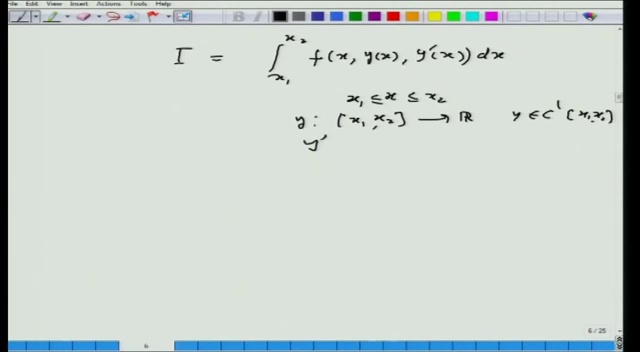 File Edit View Insert Actions Tools Help
I = ∫_{x₁}^{x₂} f(x, y(x), y′(x)) dx
x₁ ≤ x ≤ x₂
y : [x₁, x₂] ⟶ ℝ y ∈ C¹ [x₁, x₂]
y′
6 / 25
6